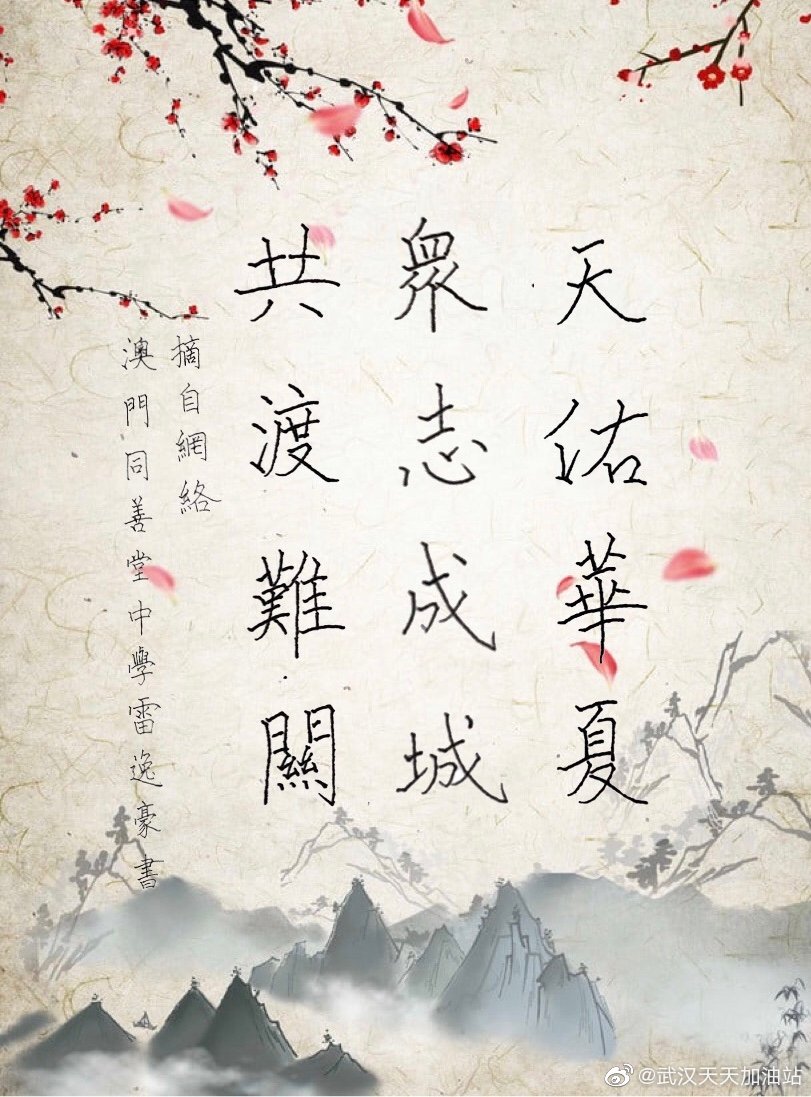 天佑華夏
眾志成城
共渡難關
摘自網絡
澳門同善堂中學雷逸豪書
@武汉天天加油站